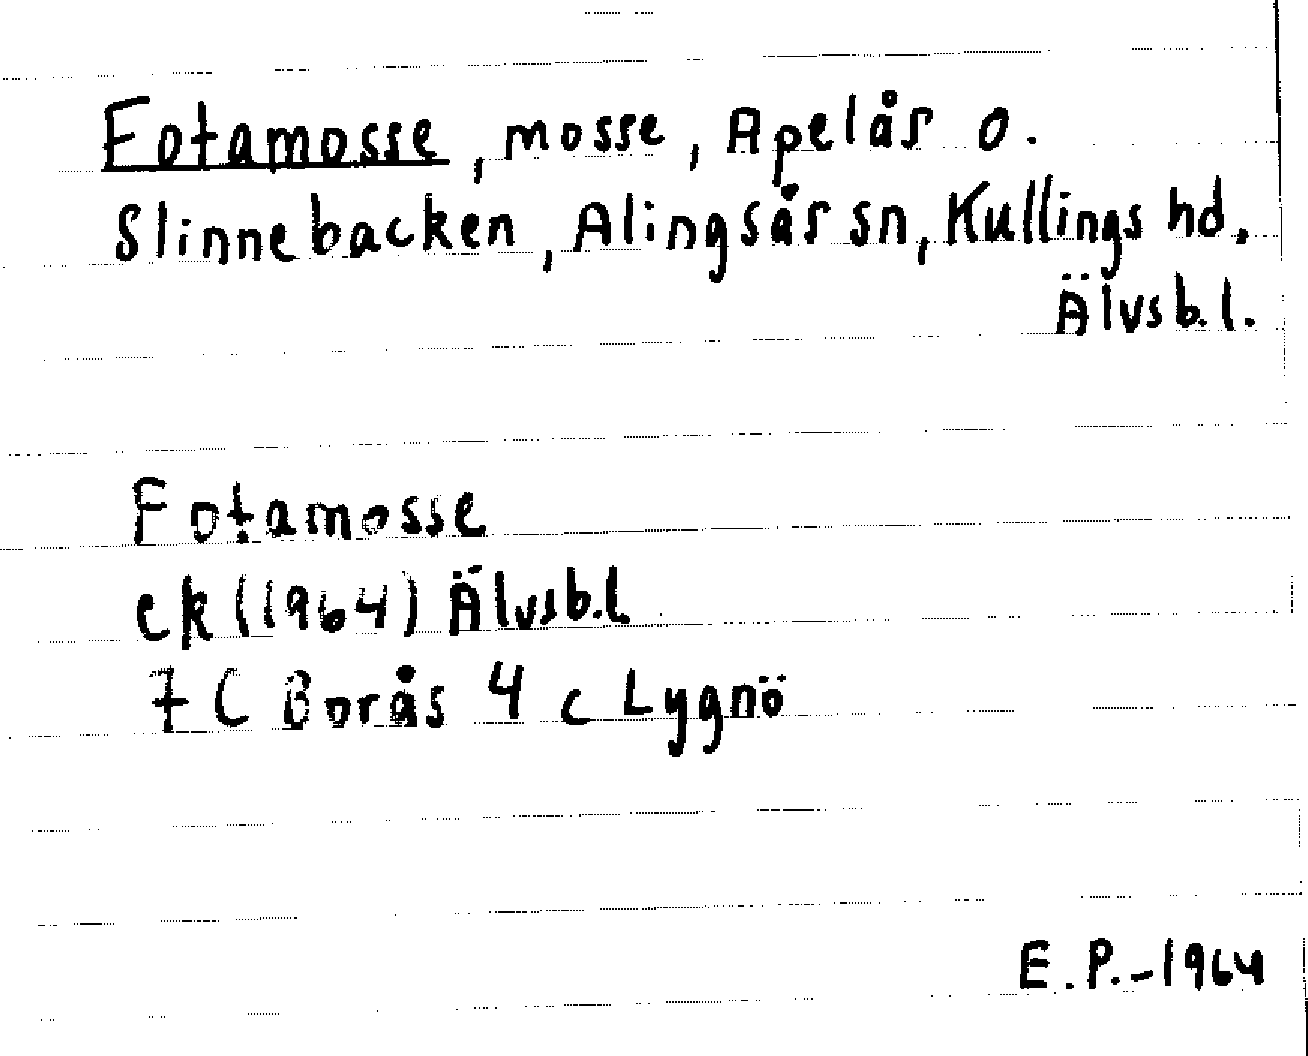 Fotamosse, mosse, Apelås o.
Slinnebacken, Alingsås sn, Kullings hd,
Älvsb.l.
Fotamosse
ek (1964) Älvsb.l
7 C Borås 4 c Lygnö
E.P.-1964